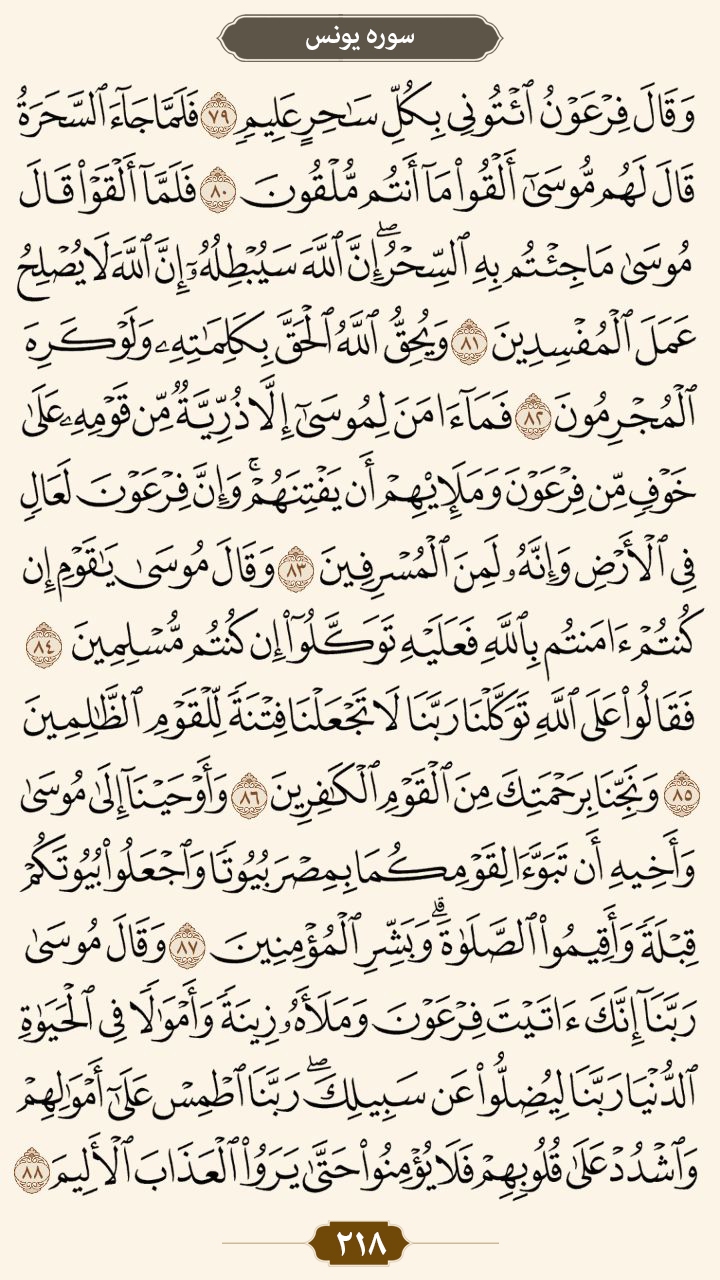 سوره یونس
وَقَالَ فِرْعَوْنُ ٱئْتُونِي بِكُلِّ سَٰحِرٍ عَلِيمٖ ٧٩ فَلَمَّا جَآءَ ٱلسَّحَرَةُ
قَالَ لَهُم مُّوسَىٰٓ أَلْقُوا۟ مَآ أَنتُم مُّلْقُونَ ٨٠ فَلَمَّآ أَلْقَوْا۟ قَالَ
مُوسَىٰ مَا جِئْتُم بِهِ ٱلسِّحْرُۖ إِنَّ ٱللَّهَ سَيُبْطِلُهُۥٓ إِنَّ ٱللَّهَ لَا يُصْلِحُ
عَمَلَ ٱلْمُفْسِدِينَ ٨١ وَيُحِقُّ ٱللَّهُ ٱلْحَقَّ بِكَلِمَٰتِهِۦ وَلَوْ كَرِهَ
ٱلْمُجْرِمُونَ ٨٢ فَمَآ ءَامَنَ لِمُوسَىٰٓ إِلَّا ذُرِّيَّةٌ مِّن قَوْمِهِۦ عَلَىٰ
خَوْفٍ مِّن فِرْعَوْنَ وَمَلَإِي۟هِمْ أَن يَفْتِنَهُمْۚ وَإِنَّ فِرْعَوْنَ لَعَالٍ
فِي ٱلْأَرْضِ وَإِنَّهُۥ لَمِنَ ٱلْمُسْرِفِينَ ٨٣ وَقَالَ مُوسَىٰ يَٰقَوْمِ إِن
كُنتُمْ ءَامَنتُم بِٱللَّهِ فَعَلَيْهِ تَوَكَّلُوٓا۟ إِن كُنتُم مُّسْلِمِينَ ٨٤
فَقَالُوا۟ عَلَى ٱللَّهِ تَوَكَّلْنَا رَبَّنَا لَا تَجْعَلْنَا فِتْنَةً لِّلْقَوْمِ ٱلظَّٰلِمِينَ
٨٥ وَنَجِّنَا بِرَحْمَتِكَ مِنَ ٱلْقَوْمِ ٱلْكَٰفِرِينَ ٨٦ وَأَوْحَيْنَآ إِلَىٰ مُوسَىٰ
وَأَخِيهِ أَن تَبَوَّءَا لِقَوْمِكُمَا بِمِصْرَ بُيُوتًا وَٱجْعَلُوا۟ بُيُوتَكُمْ
قِبْلَةً وَأَقِيمُوا۟ ٱلصَّلَوٰةَۗ وَبَشِّرِ ٱلْمُؤْمِنِينَ ٨٧ وَقَالَ مُوسَىٰ
رَبَّنَآ إِنَّكَ ءَاتَيْتَ فِرْعَوْنَ وَمَلَأَهُۥ زِينَةً وَأَمْوَٰلًا فِي ٱلْحَيَوٰةِ
ٱلدُّنْيَا رَبَّنَا لِيُضِلُّوا۟ عَن سَبِيلِكَۖ رَبَّنَا ٱطْمِسْ عَلَىٰٓ أَمْوَٰلِهِمْ
وَٱشْدُدْ عَلَىٰ قُلُوبِهِمْ فَلَا يُؤْمِنُوا۟ حَتَّىٰ يَرَوُا۟ ٱلْعَذَابَ ٱلْأَلِيمَ ٨٨
٢١٨